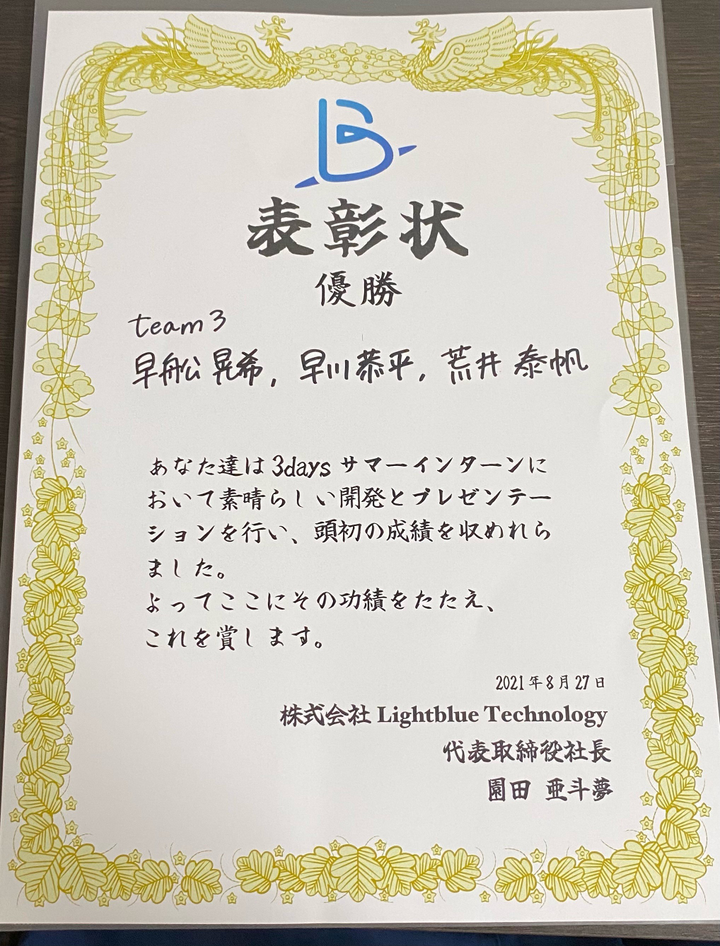 表彰状
優勝
team 3
早舩 晃希, 早川 恭平, 荒井 泰帆
あなた達は 3days サマーインターンに
おいて素晴らしい開発とプレゼンテー
ションを行い、頭初の成績を収めれら
ました。
よってここにその功績をたたえ、
これを賞します。
2021年8月27日
株式会社 Lightblue Technology
代表取締役社長
園田 亜斗夢